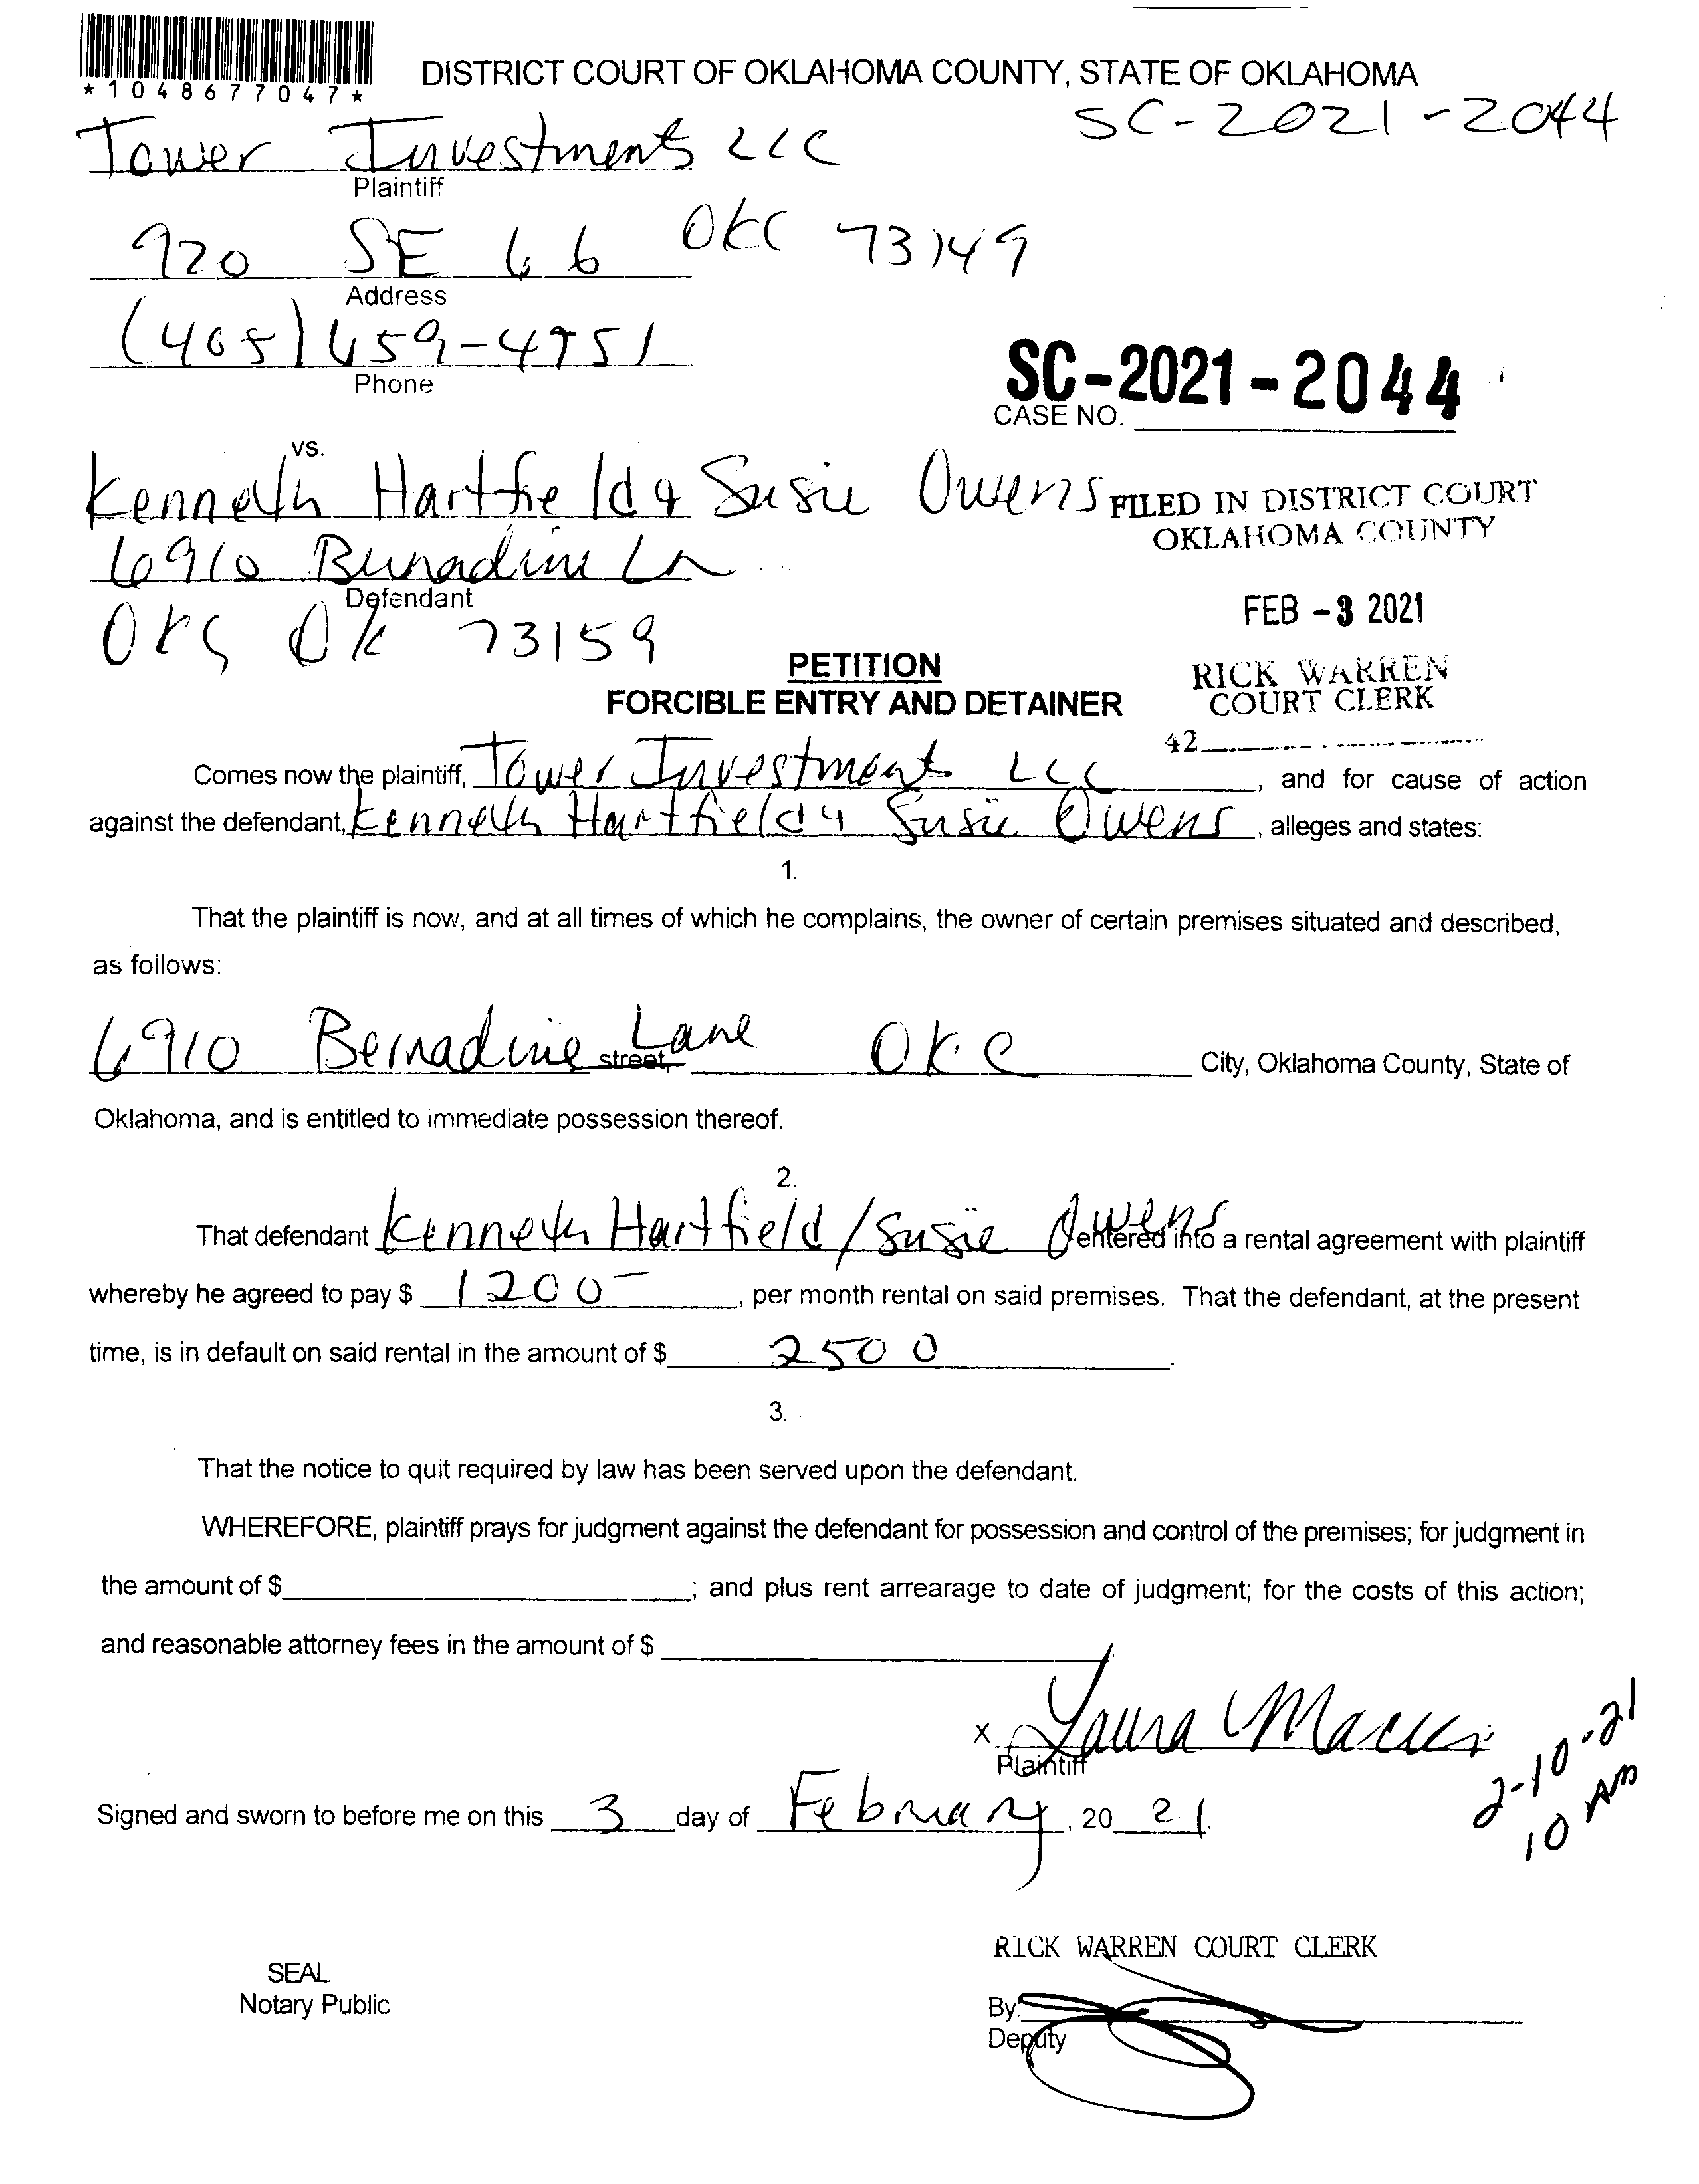 *1048677047*
DISTRICT COURT OF OKLAHOMA COUNTY, STATE OF OKLAHOMA
SC-2021-2044
Tower Investments LLC
Plaintiff
920 SE 66 OKC 73149
Address
(405) 659-4951
Phone
SC-2021-2044
CASE NO.
vs.
Kenneth Hartfield & Susie Owens
FILED IN DISTRICT COURT
OKLAHOMA COUNTY
6910 Bernadine Ln
Defendant
OKC OK 73159
FEB -3 2021
PETITION
FORCIBLE ENTRY AND DETAINER
RICK WARREN
COURT CLERK
42
Comes now the plaintiff, Tower Investment LLC, and for cause of action
against the defendant, Kenneth Hartfield & Susie Owens, alleges and states:
1.
That the plaintiff is now, and at all times of which he complains, the owner of certain premises situated and described,
as follows:
6910 Bernadine Lane street, OKC City, Oklahoma County, State of
Oklahoma, and is entitled to immediate possession thereof.
2.
That defendant Kenneth Hartfield / Susie Owens entered into a rental agreement with plaintiff
whereby he agreed to pay $ 1200-, per month rental on said premises. That the defendant, at the present
time, is in default on said rental in the amount of $ 2500.
3.
That the notice to quit required by law has been served upon the defendant.
WHEREFORE, plaintiff prays for judgment against the defendant for possession and control of the premises; for judgment in
the amount of $ ; and plus rent arrearage to date of judgment; for the costs of this action;
and reasonable attorney fees in the amount of $
x Laura
Plaintiff
2-10-21
10 AM
Signed and sworn to before me on this 3 day of February, 20 21.
RICK WARREN COURT CLERK
SEAL
Notary Public
By:
Deputy